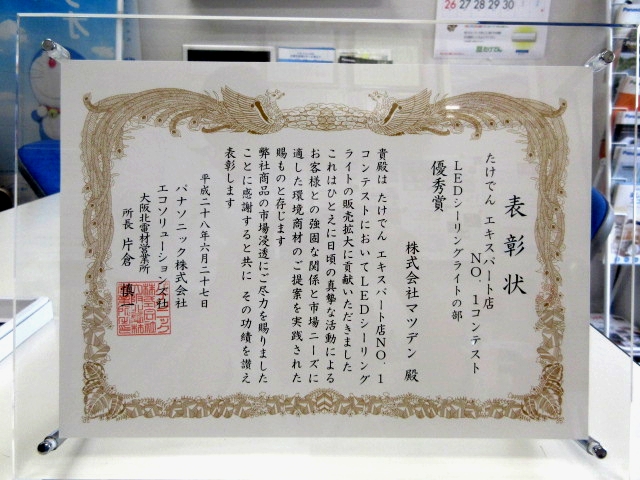 表彰状
たけでん エキスパート店
NO.1コンテスト
LEDシーリングライトの部
優秀賞
株式会社マツデン 殿
貴殿は たけでん エキスパート店NO.1
コンテストにおいてLEDシーリング
ライトの販売拡大に貢献いただきました
これはひとえに日頃の真摯な活動による
お客様との強固な関係と市場ニーズに
適した環境商材のご提案を実践された
賜ものと存じます
弊社商品の市場浸透にご尽力を賜りました
ことに感謝すると共に その功績を讃え
表彰します
平成二十八年六月二十七日
パナソニック株式会社
エコソリューションズ社
大阪北電材営業所
所長 片倉 慎一
26 27 28 29 30